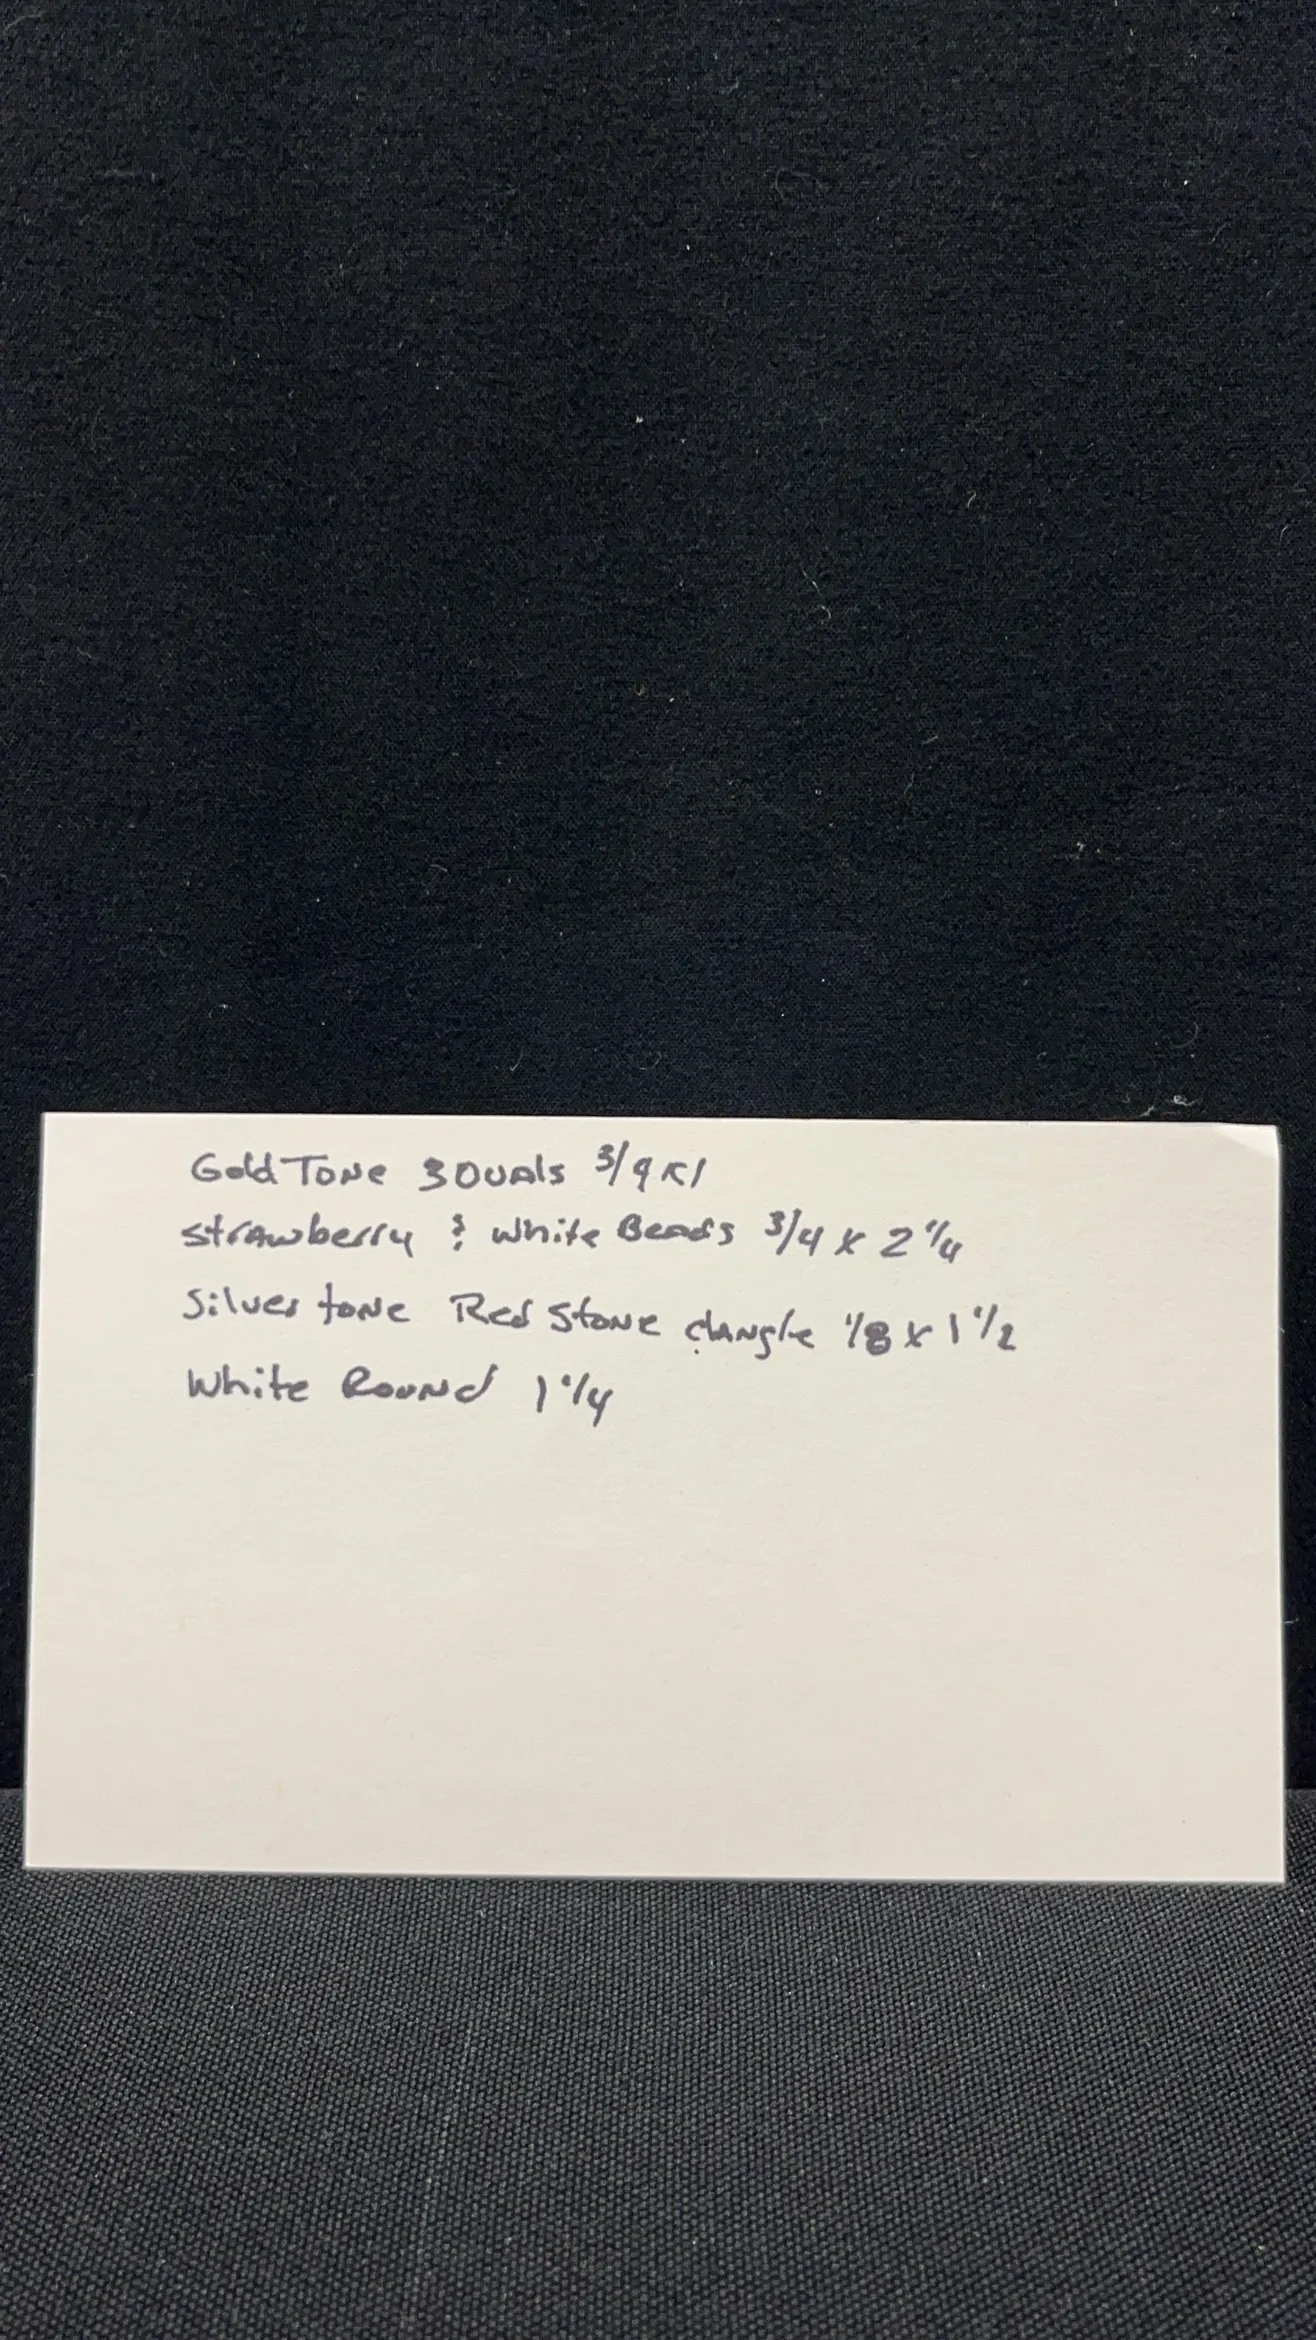 Gold Tone 3 Ovals 3/4 x 1
Strawberry & White Beads 3/4 x 2 1/4
Silver tone Red Stone dangle 1/8 x 1 1/2
White Round 1 1/4